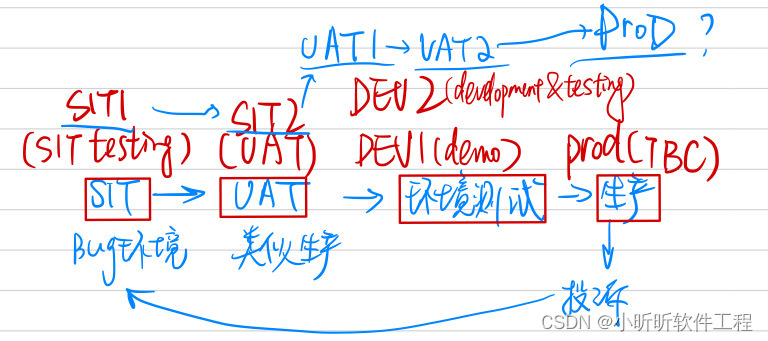 UAT1 → UAT2 → ProD ?
DEV2 (development & testing)
SIT1 → SIT2
(SIT testing) (UAT) DEV1 (demo) prod (TBC)
SIT → UAT → 环境测试 → 生产
Bug环境 类似生产
投诉
CSDN @小昕昕软件工程